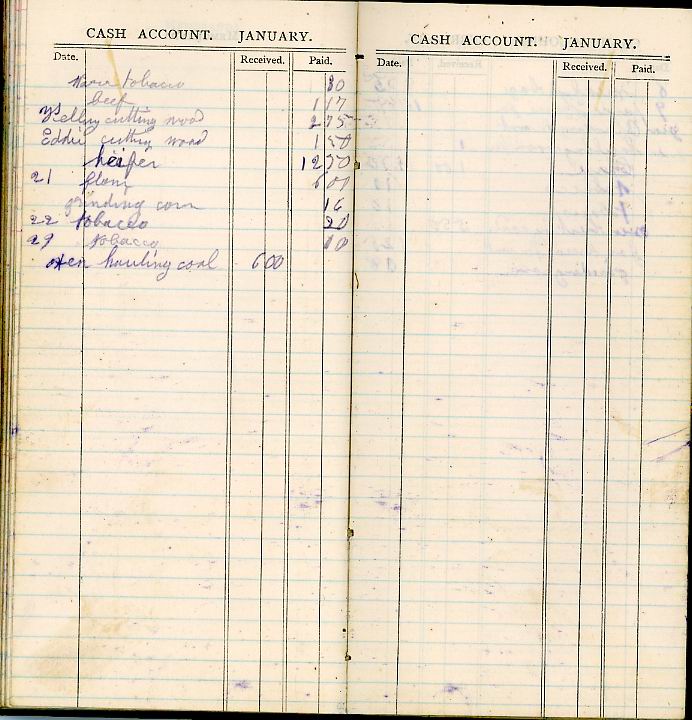 CASH ACCOUNT. JANUARY.
Date. Received. Paid.
tobacco 30
beef 1 17
cutting wood 2 75
Eddie cutting wood 1 50
heifer 12 50
21 flour
grinding corn 16
22 tobacco 20
29 tobacco 10
oxen hauling coal 6 00
CASH ACCOUNT. JANUARY.
Date. Received. Paid.